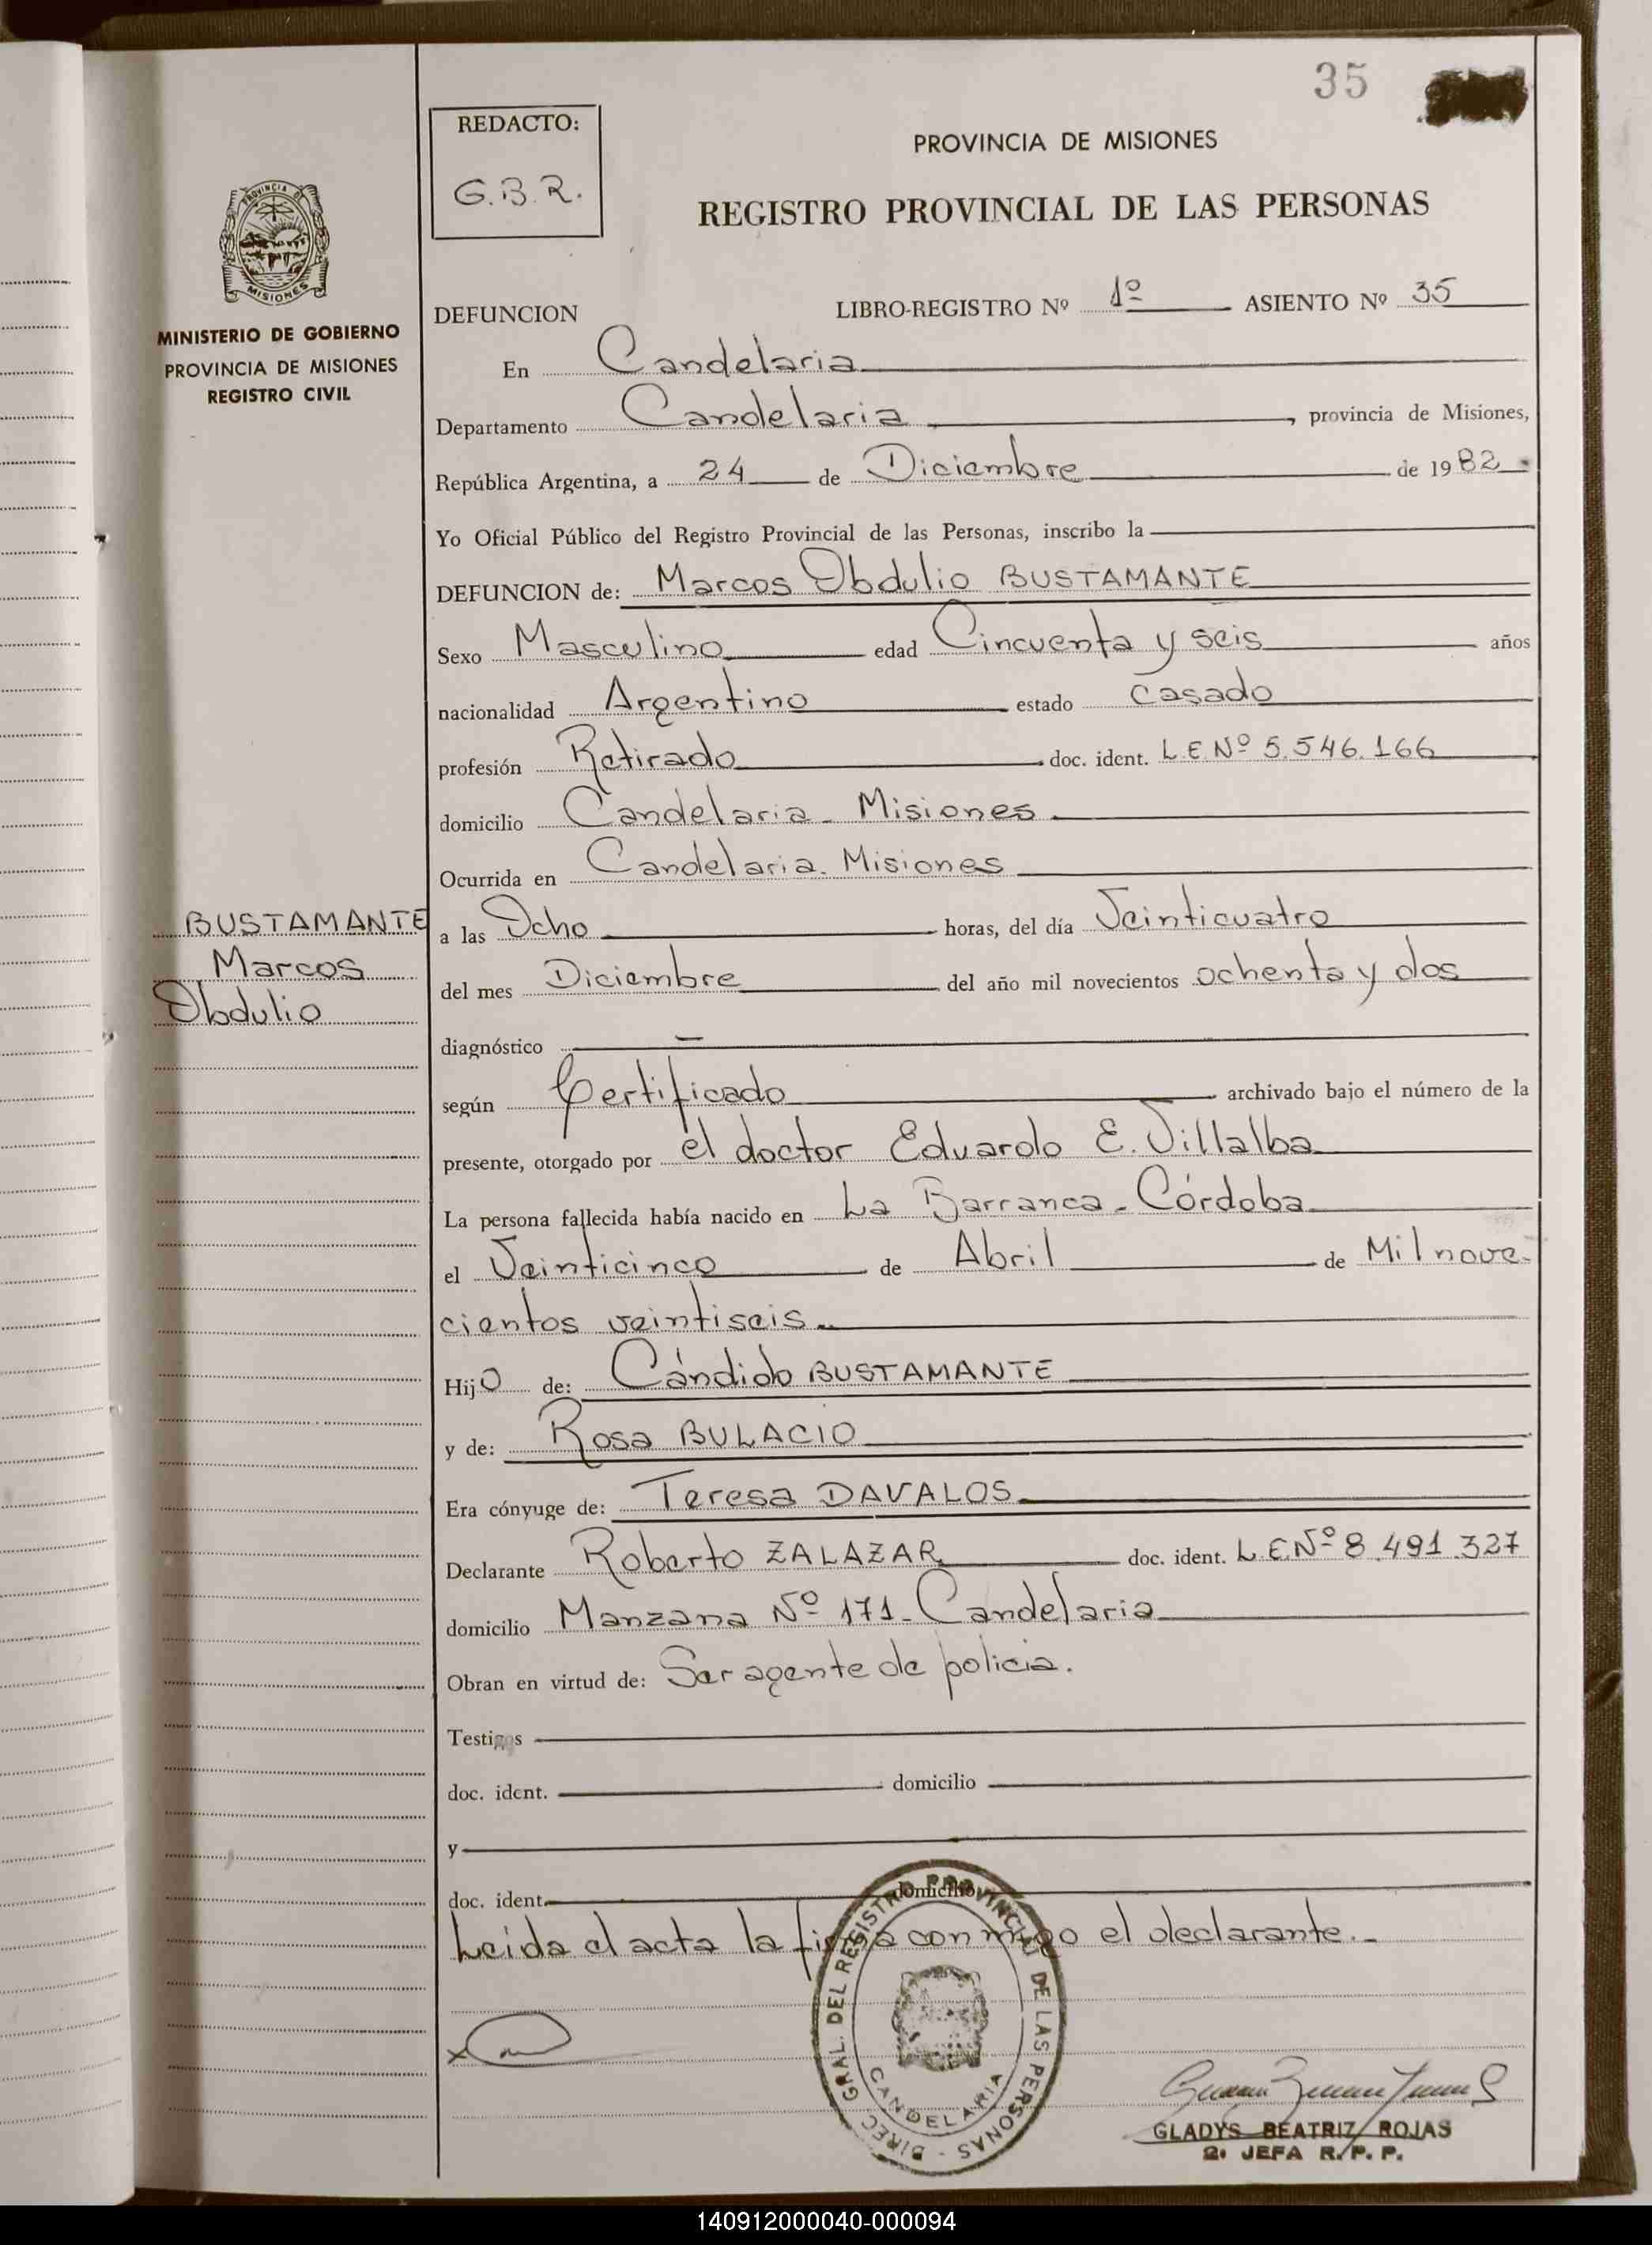 35
REDACTO:
G.B.R.
PROVINCIA DE MISIONES
REGISTRO PROVINCIAL DE LAS PERSONAS
PROVINCIA DE
MISIONES
MINISTERIO DE GOBIERNO
PROVINCIA DE MISIONES
REGISTRO CIVIL
DEFUNCION LIBRO-REGISTRO Nº 1º ASIENTO Nº 35
En Candelaria
Departamento Candelaria, provincia de Misiones,
República Argentina, a 24 de Diciembre de 1982.
Yo Oficial Público del Registro Provincial de las Personas, inscribo la
DEFUNCION de: Marcos Obdulio BUSTAMANTE
Sexo Masculino edad Cincuenta y seis años
nacionalidad Argentino estado casado
profesión Retirado doc. ident. L.E.Nº 5.546.166
domicilio Candelaria - Misiones
Ocurrida en Candelaria. Misiones
BUSTAMANTE
Marcos
Obdulio
a las Ocho horas, del día Veinticuatro
del mes Diciembre del año mil novecientos ochenta y dos
diagnóstico —
según Certificado archivado bajo el número de la
presente, otorgado por el doctor Eduardo E. Villalba
La persona fallecida había nacido en La Barranca - Córdoba
el Veinticinco de Abril de Mil nove-
cientos veintiseis.
Hijo de: Cándido BUSTAMANTE
y de: Rosa BULACIO
Era cónyuge de: Teresa DAVALOS
Declarante Roberto ZALAZAR doc. ident. L.E.Nº 8.491.327
domicilio Manzana Nº 171 - Candelaria
Obran en virtud de: Ser agente de policia.
Testigos
doc. ident. domicilio
y
doc. ident. domicilio
Leida el acta la firma conmigo el declarante.-
DIREC. GRAL. DEL REGISTRO PROVINCIAL DE LAS PERSONAS -
CANDELARIA
x
GLADYS BEATRIZ ROJAS
2ª JEFA R.P.P.
140912000040-000094